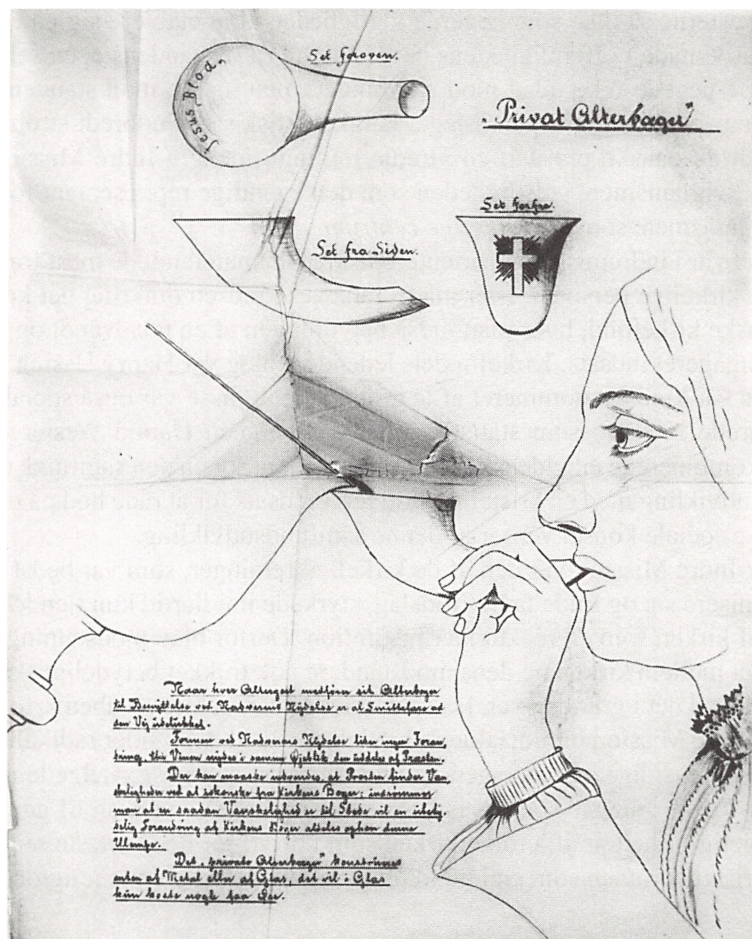 Jesus Blod.
Set foroven.
„Privat Alterbæger”
Set fra Siden.
Set forfra.
Naar hver Altergæst medfører sit Alterbæger
til Benyttelse ved Nadverens Nydelse er al Smittefare ad
den Vej udelukket.
Formen ved Nadverens Nydelse lider ingen Foran-
dring, thi Vinen nydes i samme Øjeblik den uddeles af Præsten.
Der kan maaske indvendes, at Præsten finder Van-
skeligheder ved at iskænke fra Kirkens Bæger; indrømmer
man at en saadan Vanskelighed er til Stede vil en ubety-
delig Forandring af Kirkens Bæger aldeles ophæve denne
Ulempe.
Det „private Alterbæger” konstrueres
enten af Metal eller af Glas, det vil i Glas
kun koste nogle faa Øre.